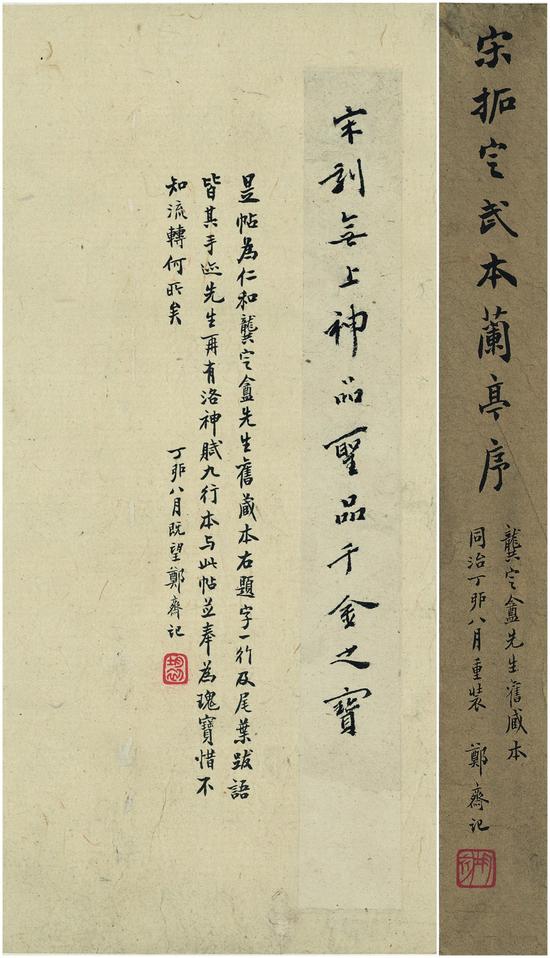 宋拓定武本蘭亭序
龔定盦先生舊藏本
同治丁卯八月重裝　鄭齋記
宋刻無上神品聖品千金之寶
是帖為仁和龔定盦先生舊藏本右題字一行及尾葉跋語
皆其手迹先生再有洛神賦九行本与此帖並奉為瑰寶惜不
知流轉何所矣
丁卯八月既望鄭齋記